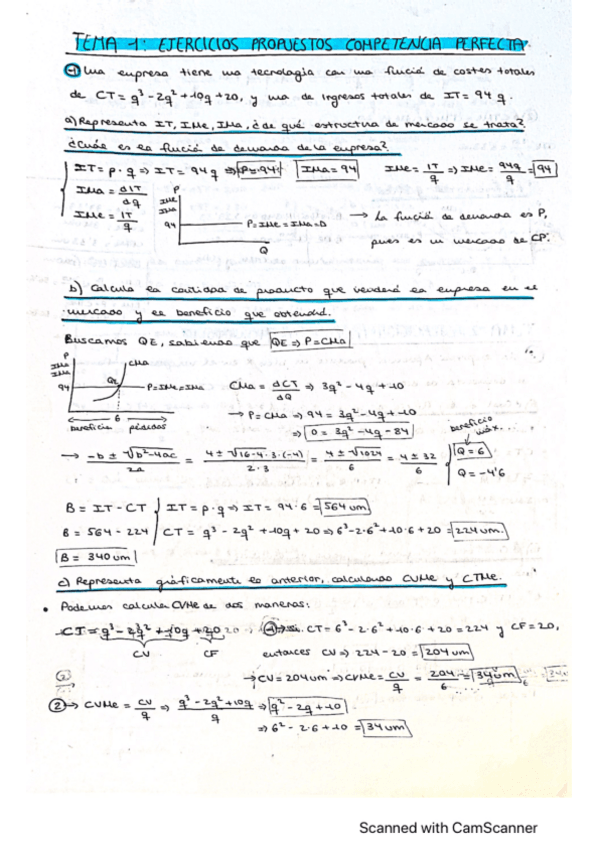 TEMA 1: EJERCICIOS PROPUESTOS COMPETENCIA PERFECTA
1) Una empresa tiene una tecnología con una función de costes totales
de CT = q³ - 2q² + 10q + 20, y una de ingresos totales de IT = 94q.
a) Representa IT, IMe, IMa, ¿de qué estructura de mercado se trata?
¿Cuál es la función de demanda de la empresa?
IT = p · q ⇒ IT = 94q ⇒ P = 94 IMa = 94 IMe = IT/q ⇒ IMe = 94q/q = 94
IMa = dIT/dq
IMe = IT/q
P
IMe
IMa
94
P = IMe = IMa = D
Q
→ La función de demanda es P,
pues es un mercado de CP.
b) Calcula la cantidad de producto que venderá la empresa en el
mercado y el beneficio que obtendrá.
Buscamos QE, sabiendo que QE ⇒ P = CMa
P
IMa
IMe
94
CMa
QE
P = IMe = IMa
6
beneficio pérdidas
CMa = dCT/dQ ⇒ 3q² - 4q + 10
→ P = CMa ⇒ 94 = 3q² - 4q + 10
⇒ 0 = 3q² - 4q - 84
→ -b ± √b² - 4ac / 2a = 4 ± √16 - 4 · 3 · (-4) / 2 · 3 = 4 ± √1024 / 6 = 4 ± 32 / 6
beneficio máx.
Q = 6
Q = -4'6
B = IT - CT IT = p · q ⇒ IT = 94 · 6 = 564 um
B = 564 - 224 CT = q³ - 2q² + 10q + 20 ⇒ 6³ - 2·6² + 10·6 + 20 = 224 um.
B = 340 um
c) Representa gráficamente lo anterior, calculando CVMe y CTMe.
• Podemos calcula CVMe de dos maneras:
CT = q³ - 2q² + 10q + 20
CV CF
1) → si CT = 6³ - 2·6² + 10·6 + 20 = 224 y CF = 20,
entonces CV ⇒ 224 - 20 = 204 um
→ CV = 204 um ⇒ CVMe = CV/q = 204/6 = 34 um
2) → CVMe = CV/q ⇒ q³ - 2q² + 10q / q ⇒ q² - 2q + 10
⇒ 6² - 2·6 + 10 = 34 um
Scanned with CamScanner